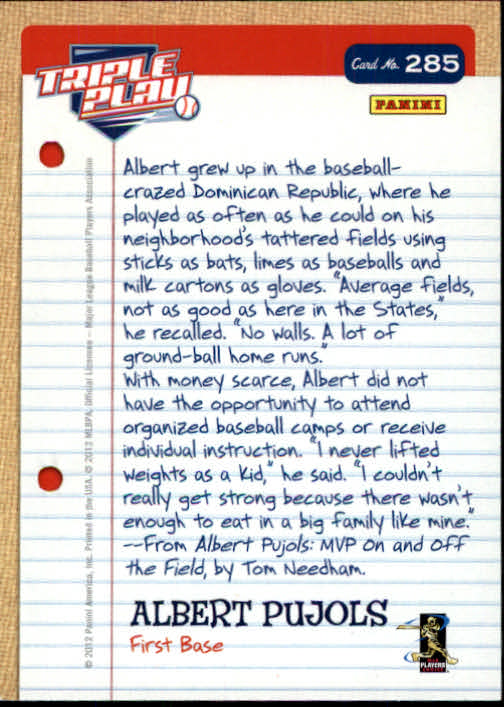 Card No. 285
TRIPLE
PLAY
PANINI
Albert grew up in the baseball-
crazed Dominican Republic, where he
played as often as he could on his
neighborhood's tattered fields using
sticks as bats, limes as baseballs and
milk cartons as gloves. "Average fields,
not as good as here in the States,"
he recalled. "No walls. A lot of
ground-ball home runs."
With money scarce, Albert did not
have the opportunity to attend
organized baseball camps or receive
individual instruction. "I never lifted
weights as a kid," he said. "I couldn't
really get strong because there wasn't
enough to eat in a big family like mine."
--From Albert Pujols: MVP On and Off
the Field, by Tom Needham.
ALBERT PUJOLS
First Base
PLAYERS
CHOICE
© 2012 Panini America, Inc. Printed in the USA. © 2012 MLBPA, Official Licensee – Major League Baseball Players Association